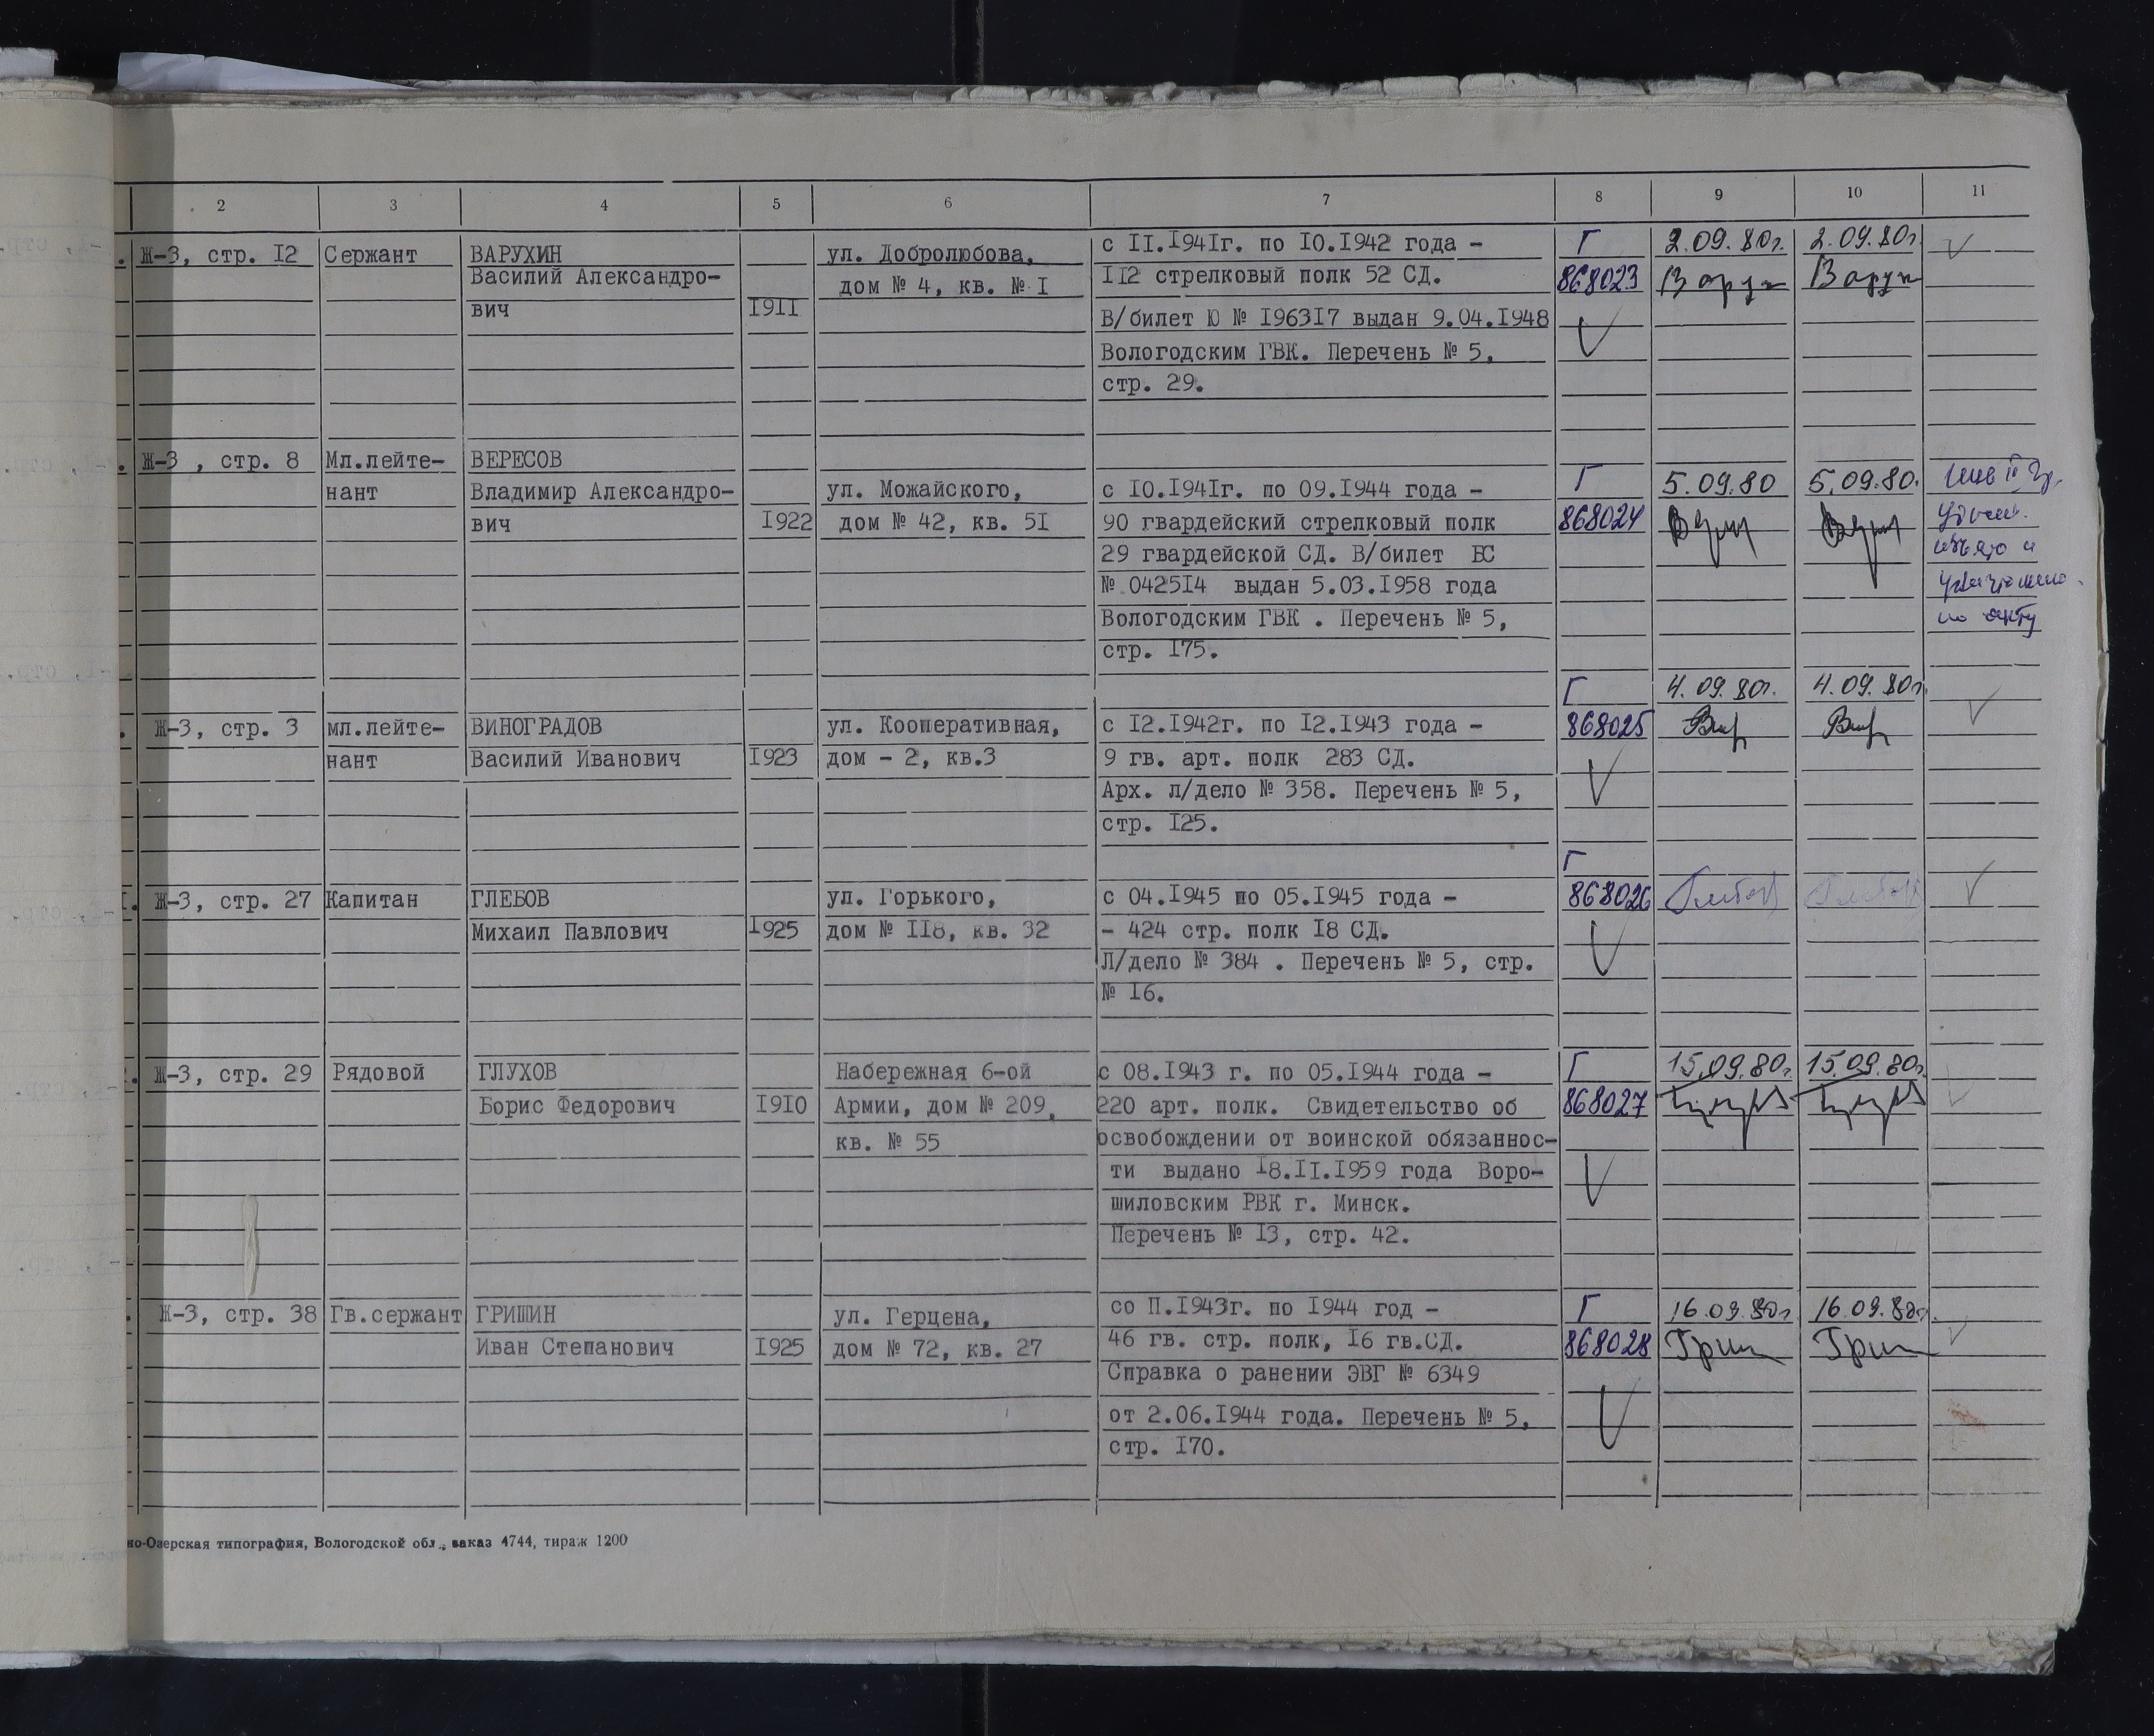 2 3 4 5 6 7 8 9 10 11
Ж-3, стр. I2
Сержант
ВАРУХИН
Василий Александро-
вич
I9II
ул. Добролюбова,
дом № 4, кв. № I
с II.I94Iг. по I0.I942 года -
II2 стрелковый полк 52 СД.
В/билет Ю № I963I7 выдан 9.04.I948
Вологодским ГВК. Перечень № 5,
стр. 29.
Г
868023
2.09.80г.
Варух
2.09.80г
Варух
Ж-3 , стр. 8
Мл.лейте-
нант
ВЕРЕСОВ
Владимир Александро-
вич
I922
ул. Можайского,
дом № 42, кв. 5I
с I0.I94Iг. по 09.I944 года -
90 гвардейский стрелковый полк
29 гвардейской СД. В/билет БС
№ 0425I4 выдан 5.03.I958 года
Вологодским ГВК . Перечень № 5,
стр. I75.
Г
868024
5.09.80
5.09.80.
по акту
Ж-3, стр. 3
мл.лейте-
нант
ВИНОГРАДОВ
Василий Иванович
I923
ул. Кооперативная,
дом - 2, кв.3
с I2.I942г. по I2.I943 года -
9 гв. арт. полк 283 СД.
Арх. л/дело № 358. Перечень № 5,
стр. I25.
Г
868025
4.09.80г.
4.09.80г.
Ж-3, стр. 27
Капитан
ГЛЕБОВ
Михаил Павлович
I925
ул. Горького,
дом № II8, кв. 32
с 04.I945 по 05.I945 года -
- 424 стр. полк I8 СД.
Л/дело № 384 . Перечень № 5, стр.
№ I6.
Г
868026
Ж-3, стр. 29
Рядовой
ГЛУХОВ
Борис Федорович
I9I0
Набережная 6-ой
Армии, дом № 209,
кв. № 55
с 08.I943 г. по 05.I944 года -
220 арт. полк. Свидетельство об
освобождении от воинской обязаннос-
ти выдано I8.II.I959 года Воро-
шиловским РВК г. Минск.
Перечень № I3, стр. 42.
Г
868027
15.09.80г.
15.09.80г.
Ж-3, стр. 38
Гв.сержант
ГРИШИН
Иван Степанович
I925
ул. Герцена,
дом № 72, кв. 27
со П.I943г. по I944 год -
46 гв. стр. полк, I6 гв.СД.
Справка о ранении ЭВГ № 6349
от 2.06.I944 года. Перечень № 5,
стр. I70.
Г
868028
16.09.80г.
Гриш
16.09.80г.
Гриш
но-Озерская типография, Вологодской обл., заказ 4744, тираж 1200